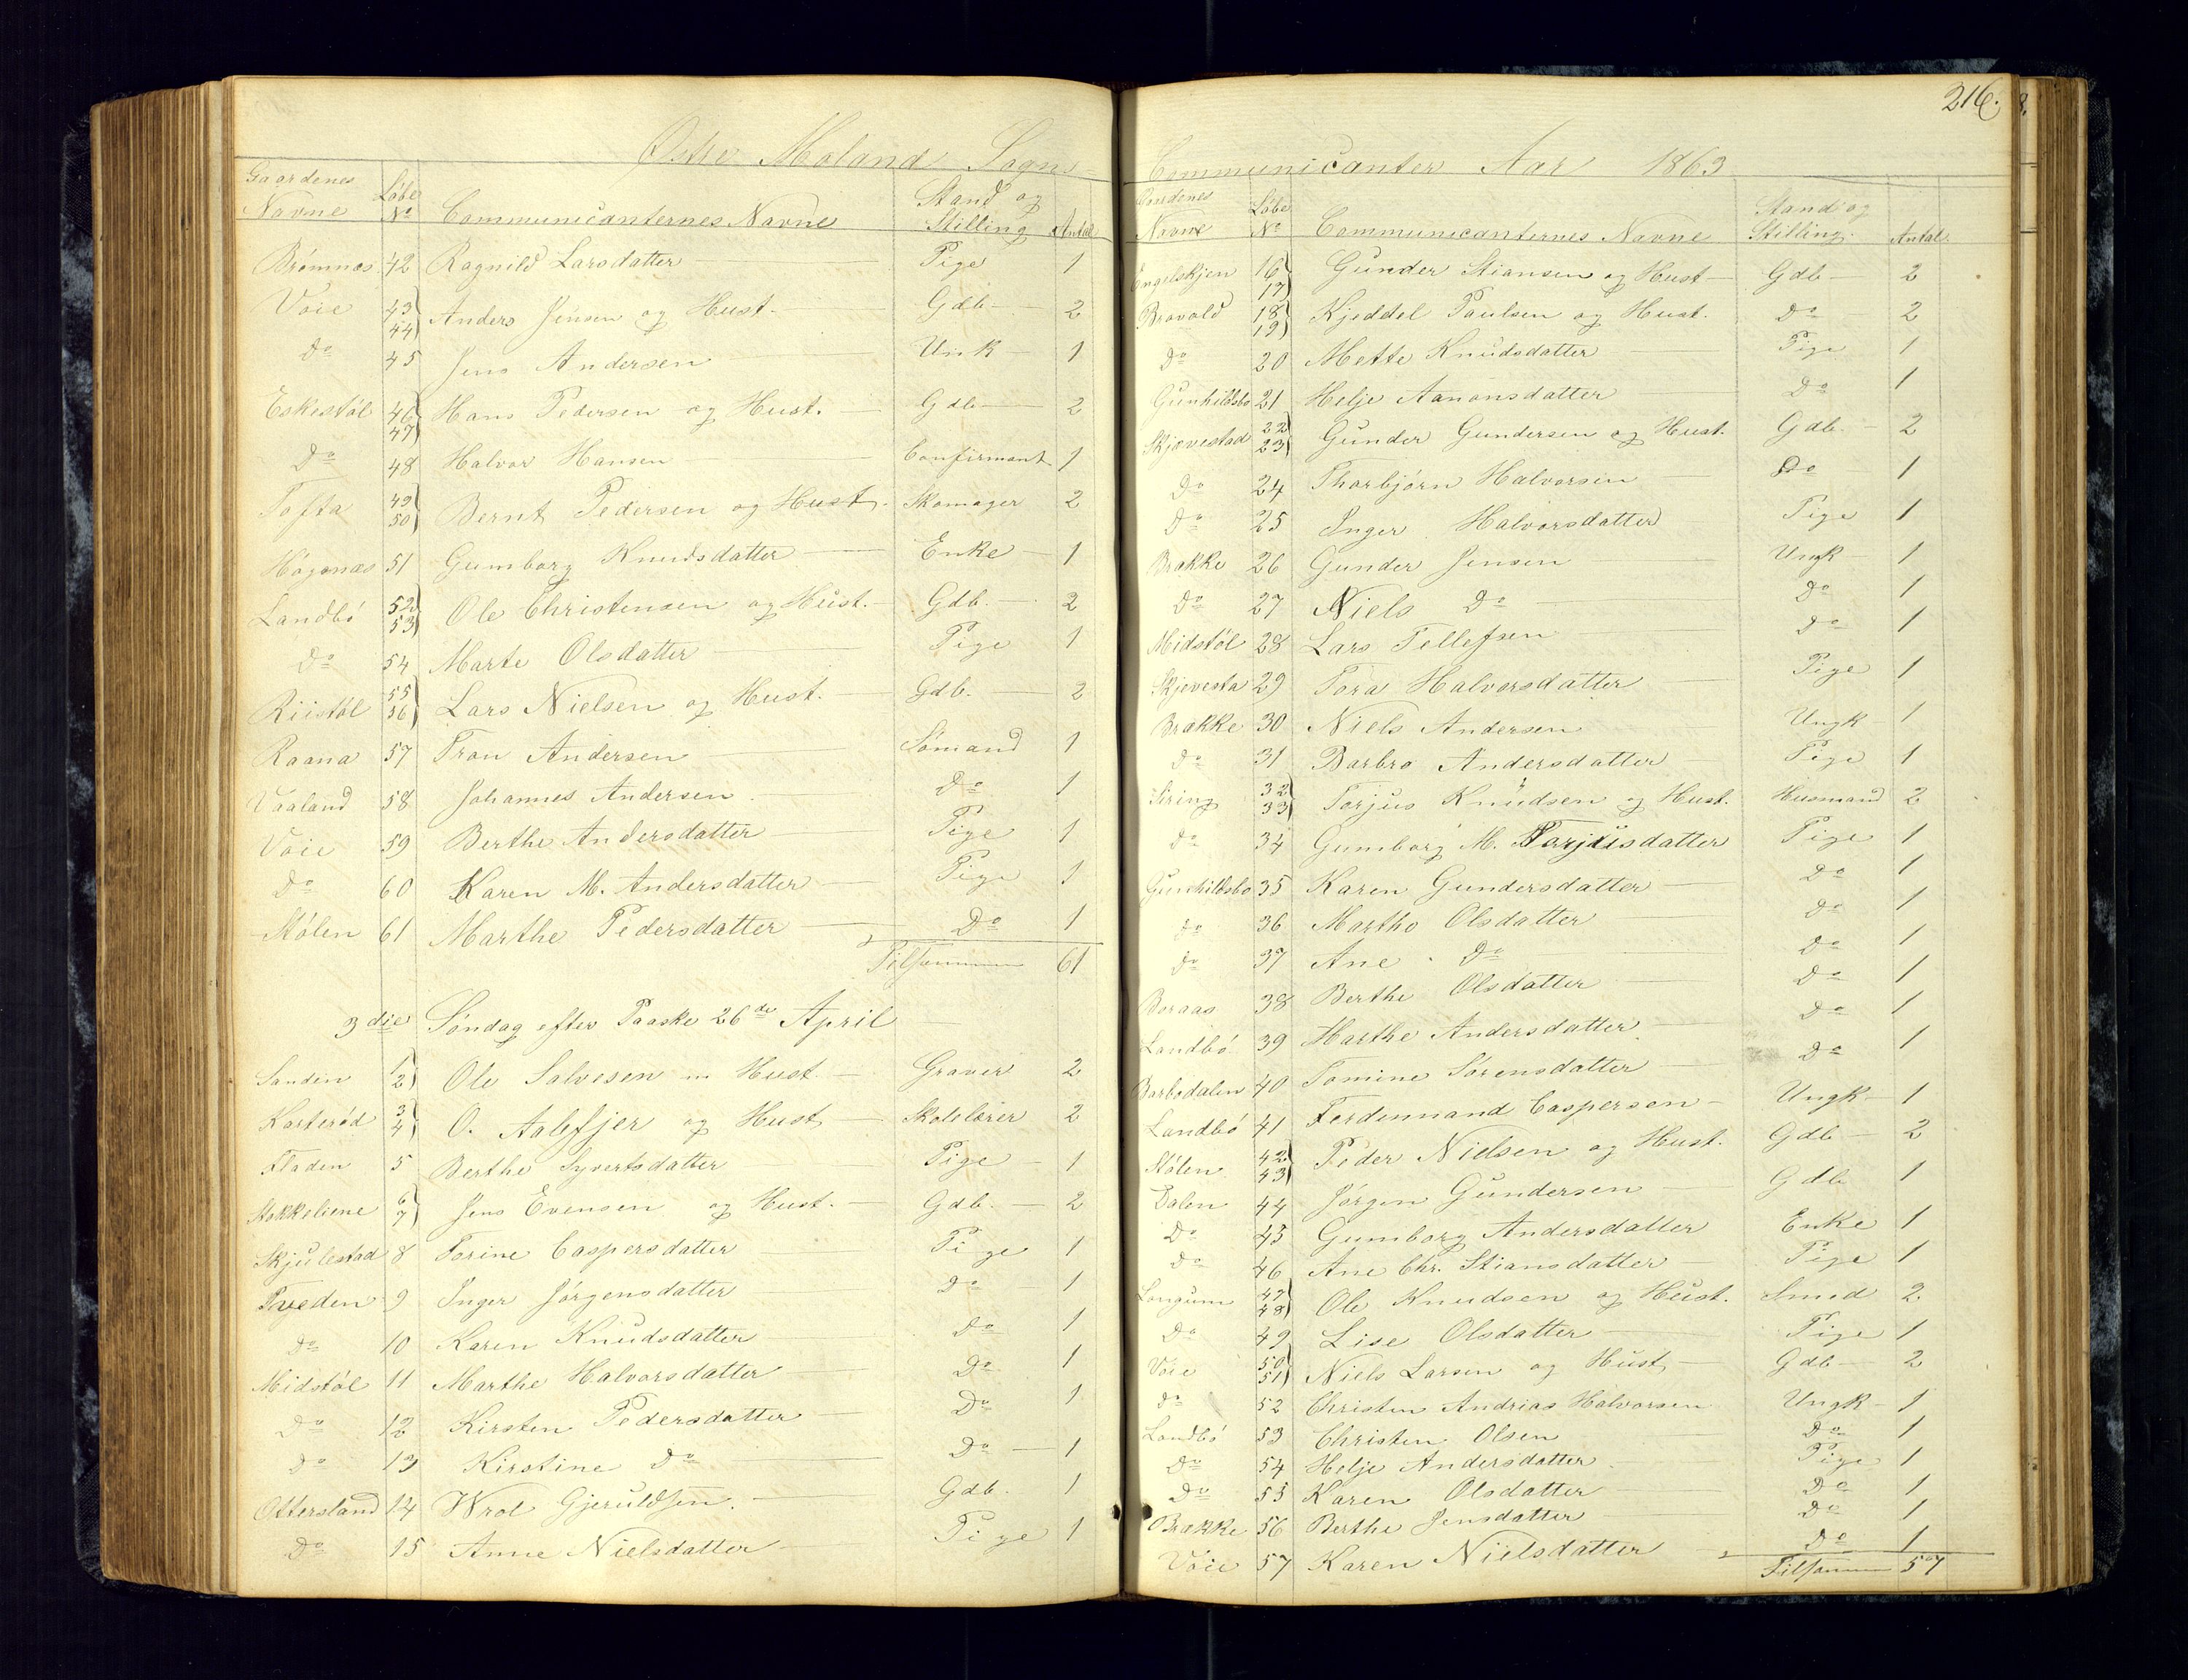 Østre Moland Sogns
Gaardenes Navne Løbe No Communicanternes Navne Stand og Stilling Antal
Bromnæs 42 Ragnild Larsdatter Pige 1
Voie 43 44 Anders Jensen og Hust. Gdb. 2
Do 45 Jens Andersen Unk 1
Eskestøl 46 47 Hans Pedersen og Hust. Gdb 2
Do 48 Halvor Hansen Confirmant 1
Tofta 49 50 Bernt Pedersen og Hust. Skomager 2
Høgenæs 51 Gumborg Knudsdatter Enke 1
Landbø 52 53 Ole Christensen og Hust. Gdb. 2
Do 54 Marte Olsdatter Pige 1
Riistøl 55 56 Lars Nielsen og Hust. Gdb. 2
Raana 57 Tron Andersen Sømand 1
Vaaland 58 Johannes Andersen Do 1
Voie 59 Berthe Andersdatter Pige 1
Do 60 Karen M. Andersdatter Pige 1
Stølen 61 Marthe Pedersdatter Do 1
Tilsammen 61
3die Søndag efter Paaske 26de April
Sanden 1 2 Ole Salvesen m Hust. Graver 2
Karterød 3 4 O. Aalefjer og Hust Skolelærer 2
Fladen 5 Berthe Syvertsdatter Pige 1
Stokkeliene 6 7 Jens Evensen og Hust. Gdb. 2
Skjulestad 8 Torine Caspersdatter Pige 1
Tveden 9 Inger Jørgensdatter Do 1
Do 10 Karen Knudsdatter Do 1
Midstøl 11 Marthe Halvorsdatter Do 1
Do 12 Kirsten Pedersdatter Do 1
Do 13 Kirstine Do Do 1
Ottersland 14 Wrol Gjeruldsen. Gdb. 1
Do 15 Anne Nielsdatter Pige 1
216.
Communicanter Aar 1863
Navne Løbe No Communicanternes Navne Stand og Stilling. Antal.
Engelskjen 16 17 Gunder Stiansen og Hust Gdb 2
Bravold 18 19 Kjeddel Paulsen og Hust. Do 2
Do 20 Mette Knudsdatter Pige 1
Gunhildsbo 21 Helje Aanonsdatter Do 1
Skjævestad 22 23 Gunder Gundersen og Hust. Gdb. 2
Do 24 Thorbjørn Halvorsen Do 1
Do 25 Inger Halvorsdatter Pige 1
Brække 26 Gunder Jensen Ungk 1
Do 27 Niels Do Do 1
Midstøl 28 Lars Tellefsen Do 1
Skjevesta 29 Tora Halvorsdatter Pige 1
Brække 30 Niels Andersen Ungk 1
Do 31 Barbro Andersdatter Pige 1
Siring 32 33 Torjus Knudsen og Hust. Husmand 2
Do 34 Gumborg M. Torjusdatter Pige 1
Gunhildsbo 35 Karen Gundersdatter Do 1
Do 36 Marthe Olsdatter Do 1
Do 37 Ane Do Do 1
Boraas 38 Berthe Olsdatter Do 1
Landbø 39 Marthe Andersdatter Do 1
Barbodalen 40 Tomine Sørensdatter Do 1
Landbø 41 Ferdinnand Caspersen Ungk 1
Stølen 42 43 Peder Nielsen og Hust. Gdb 2
Dalen 44 Jørgen Gundersen Gdb 1
Do 45 Gumborg Andersdatter Enke 1
Do 46 Ane Chr. Stiansdatter Pige 1
Longum 47 48 Ole Knudsen og Hust. Smed 2.
Do 49 Lise Olsdatter Pige 1
Voie 50 51 Niels Larsen og Hust Gdb 2
Do 52 Christen Andrias Halvorsen Ungk 1
Landbø 53 Christen Olsen Do 1
Do 54 Helje Andersdatter Pige 1
Do 55 Karen Olsdatter Do 1
Brække 56 Berthe Jensdatter Do 1
Voie 57 Karen Nielsdatter Do 1
Tilsammen 57